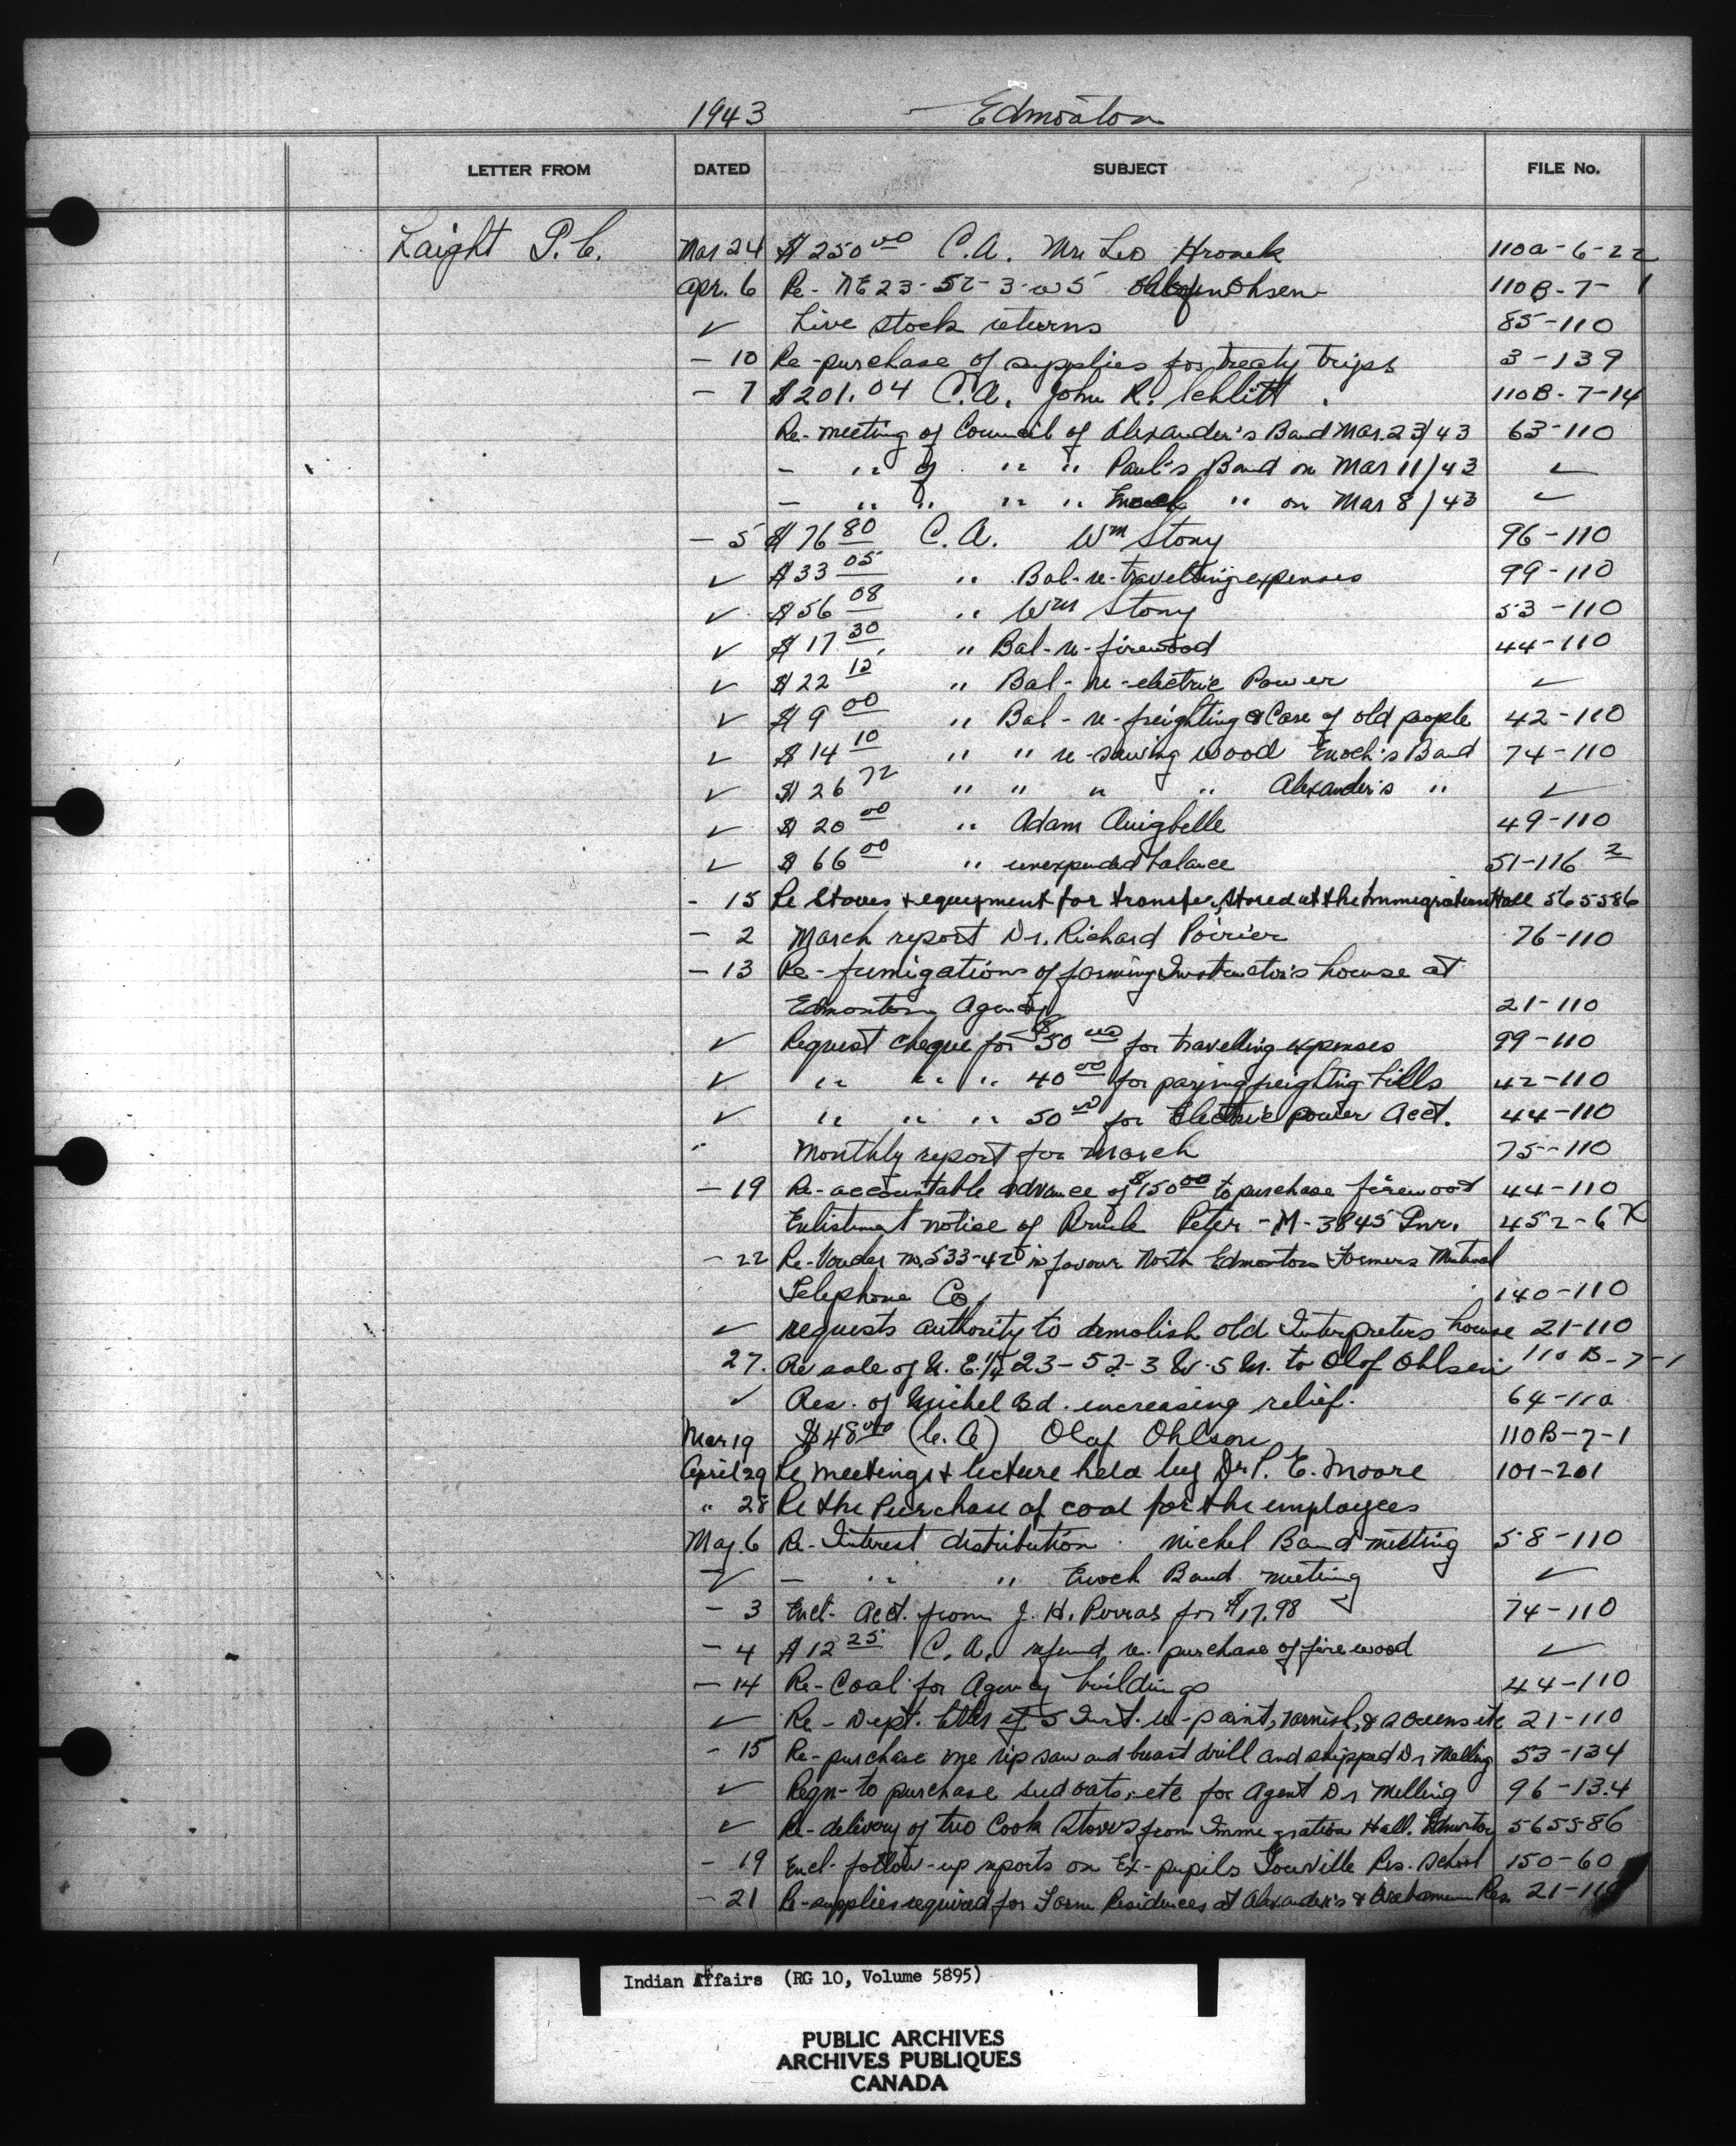 1943 Edmonton
LETTER FROM DATED SUBJECT FILE No.
Laight P.C. Mar 24 $250 00 C.A. Mr. Leo Hronek 110a-6-22
Apr. 6 Re- NE 23-52-3-W5 Ohlsen 110B-7-1
✓ Live stock returns 85-110
- 10 Re-purchase of supplies for treaty trips 3-139
- 7 $201.04 C.A. John R. Schlitt. 110B-7-14
Re-meeting of Council of Alexander's Band Mar. 23/43 63-110
- " of " " Paul's Band on Mar 11/43 ✓
- " " " " Enoch " on Mar 8/43 ✓
- 5 $76 80 C.A. Wm Stony 96-110
✓ $33 05 " Bal-re-travelling expenses 99-110
✓ $56 08 " Wm Stony 53-110
✓ $17 30 " Bal-re-firewood 44-110
✓ $22 12 " Bal-re-electric Power ✓
✓ $9 00 " Bal-re-freighting & Care of old people 42-110
✓ $14 10 " " re-sawing wood Enoch's Band 74-110
✓ $26 72 " " " " Alexander's " ✓
✓ $20 00 " Adam 49-110
✓ $66 00 " unexpended balance 51-116 2
- 15 Re Stoves & equipment for transfer, stored at the Immigration Hall 565586
- 2 March report Dr. Richard Poirier 76-110
- 13 Re-fumigations of farming Instructor's house at
Edmonton Agency 21-110
✓ Request cheque for $50 00 for travelling expenses 99-110
✓ " " " 40 00 for paying freighting bills 42-110
✓ " " " 50 00 for Electric power Acct. 44-110
" Monthly report for March 75-110
- 19 Re-accountable advance of $150 00 to purchase firewood 44-110
Enlistment notice of Peter -M-3845 Pnr. 452-6 X
- 22 Re-Voucher no. 533-42 in favour North Edmonton Farmers Mutual
Telephone Co. 140-110
✓ requests authority to demolish old Interpreters house 21-110
27. Re sale of N.E. 1/4 23-52-3 W.5 M. to Olof Ohlsen 110 B-7-1
✓ Res. of Michel Bd. increasing relief. 64-110
Mar 19 $48 00 (C.A) Olof Ohlson 110B-7-1
April 29 Re meetings & lecture held by Dr P. E. Moore 101-201
" 28 Re the Purchase of coal for the employees
May. 6 Re-Interest distribution. Michel Band meeting 58-110
✓ - " " Enoch Band meeting ✓
- 3 Encl- Acct. from J. H. Porras for $17.98 74-110
- 4 $12 25 C.A. refund re. purchase of firewood ✓
- 14 Re-Coal for Agency buildings 44-110
✓ Re-Dept. of 5 Inst. re-paint, varnish, & etc 21-110
- 15 Re-purchase one rip saw and breast drill and shipped Dr Melling 53-134
✓ Reqn-to purchase seed oats, etc for Agent Dr Melling 96-134
✓ Re-delivery of two Cook Stoves from Immigration Hall. Edmonton 565586
- 19 Encl-follow-up reports on Ex-pupils Res. School 150-60
- 21 Re-supplies required for Farm Residences at Alexander's & Res. 21-110
Indian Affairs (RG 10, Volume 5895)
PUBLIC ARCHIVES
ARCHIVES PUBLIQUES
CANADA